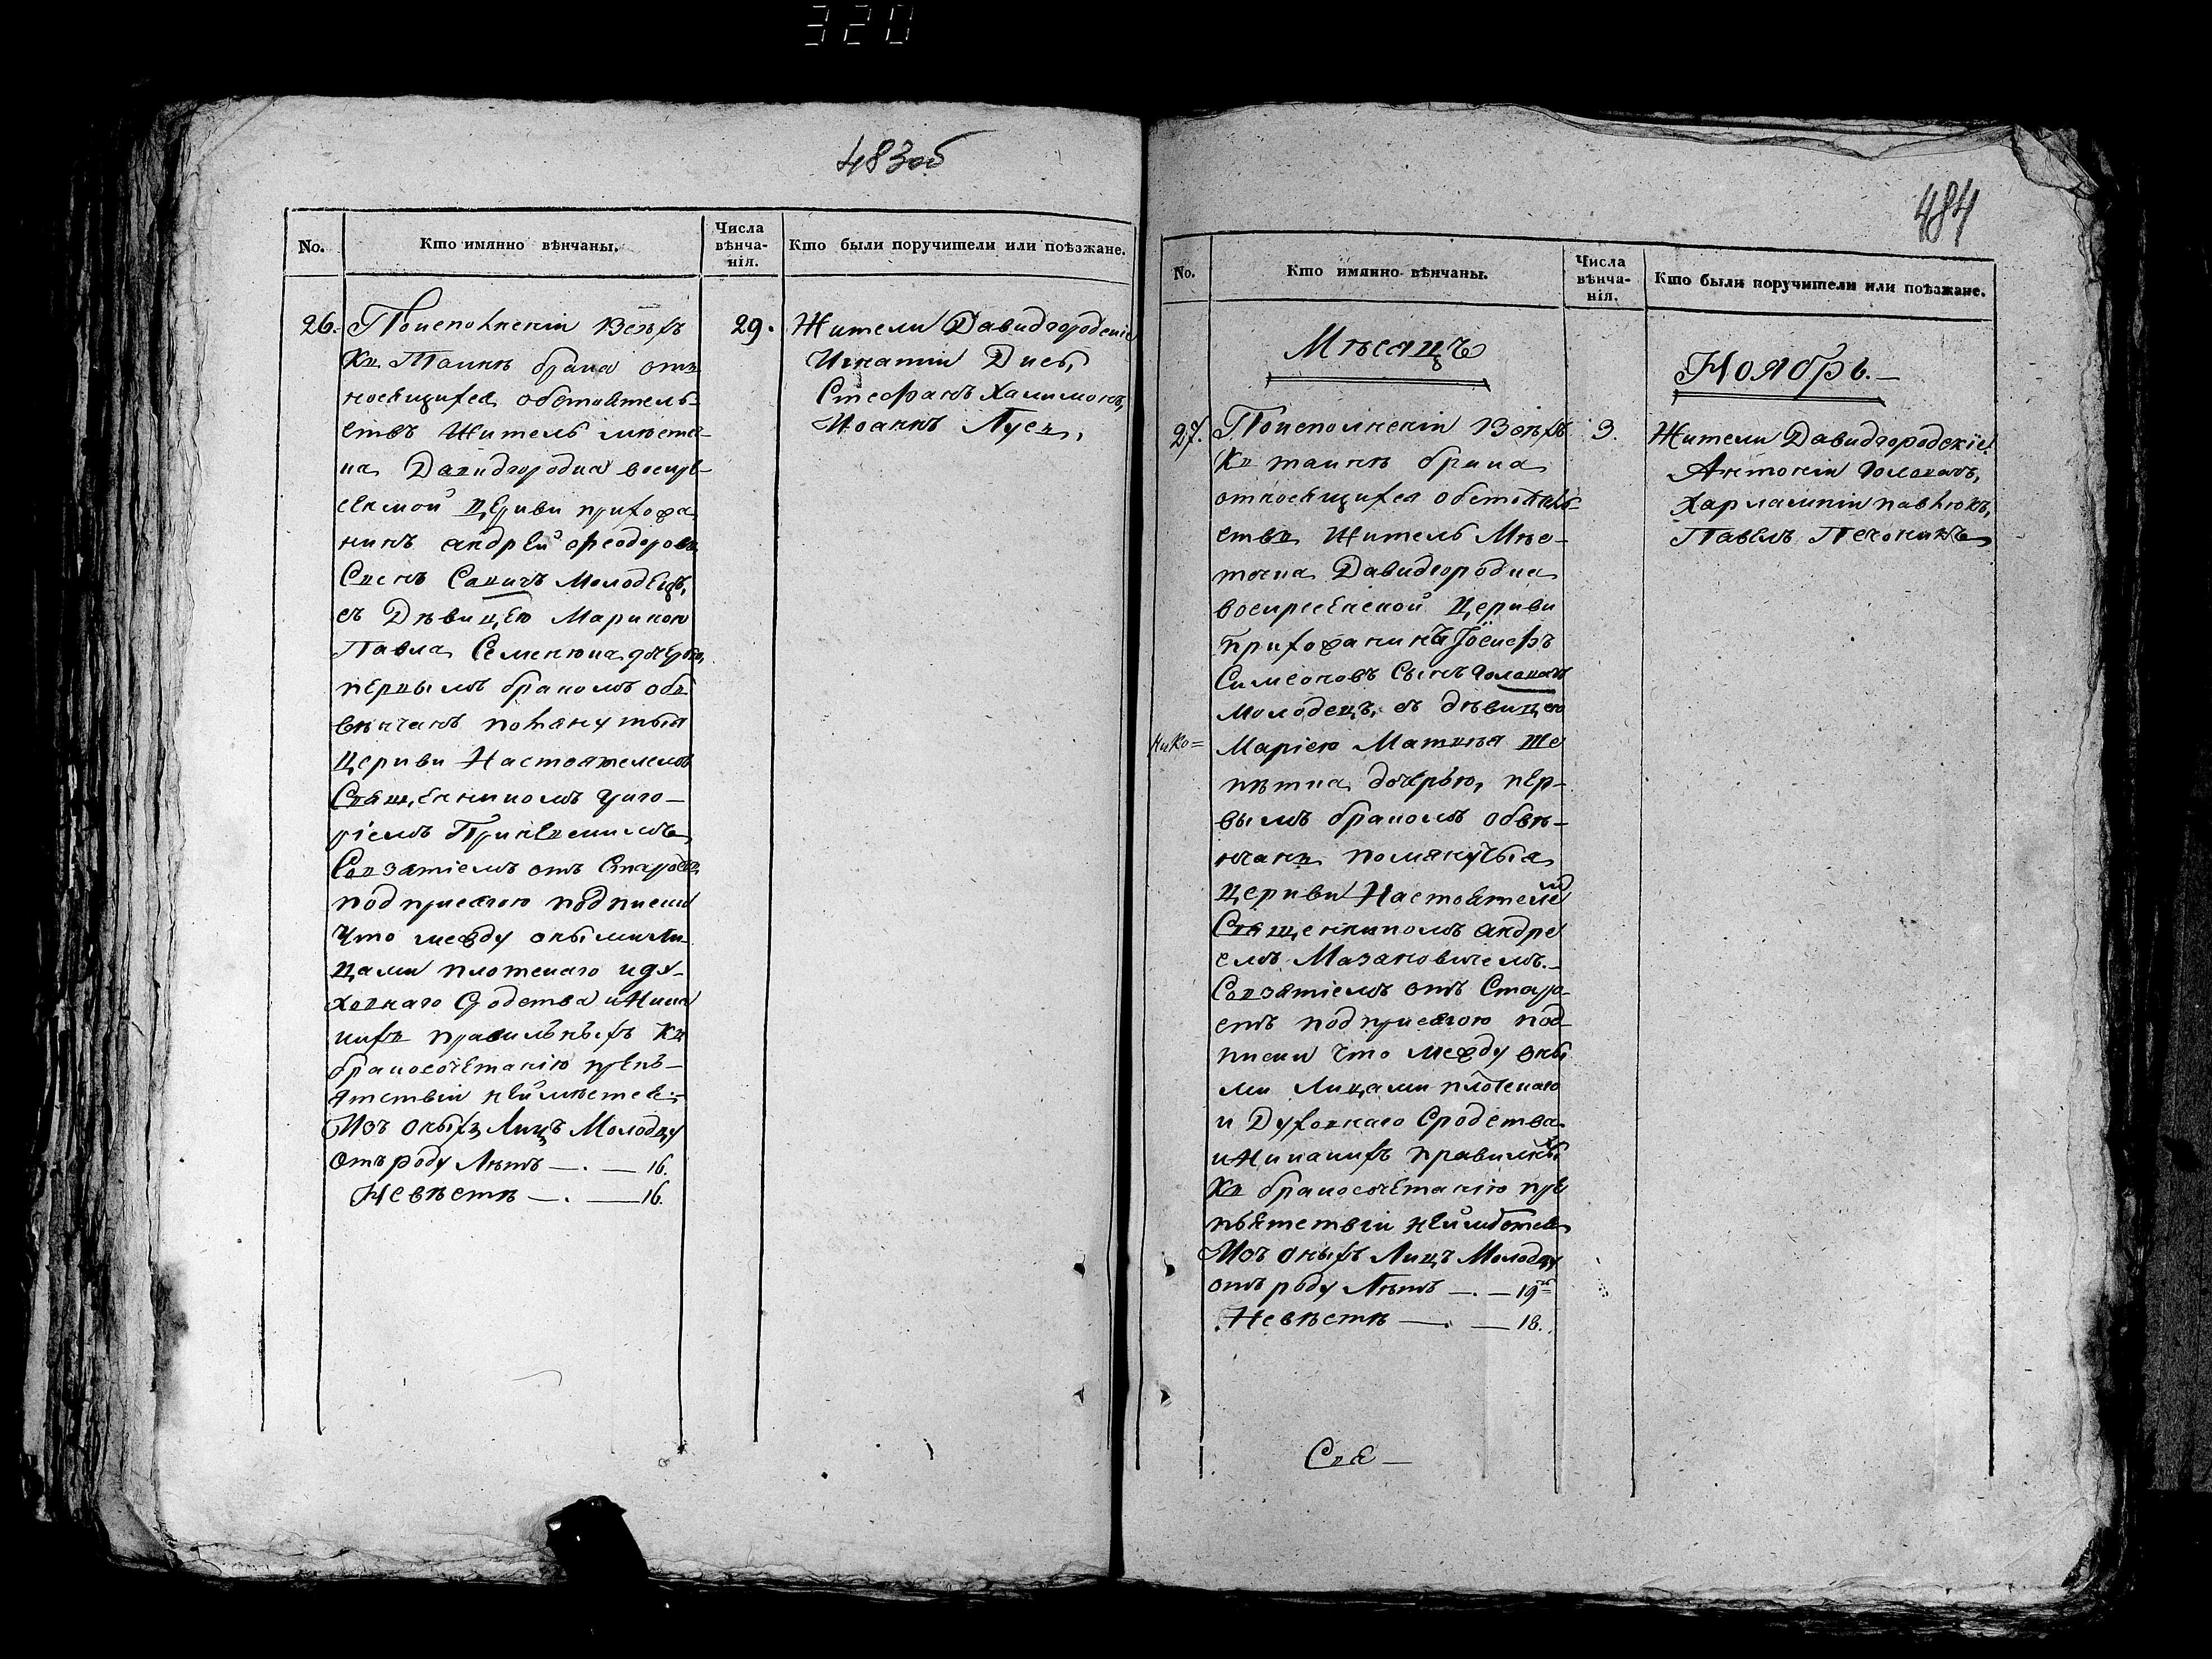 320
483об
No.
Кто имянно вѣнчаны.
Числа
вѣнча-
нія.
Кто были поручители или поѣзжане.
26. Поисполненіи Всѣхъ
Къ Таинѣ брака отъ
носящихся обстоятель-
ствъ Житель мѣстеч-
ка Давидгородка воскре-
сенской Церкви прихожа
нинъ андрей феодоровъ
Сынъ Савичъ молодецъ,
съ Дѣвицею Мариною
Павла Семенюка дочерью,
первымъ бракомъ объ
вѣнчанъ помянутыя
Церкви Настоятелемъ
Священникомъ Григо-
ріемъ
Совзятіемъ отъ Старостъ
подприсягою подписки
Что между оными Ли-
цами плотскаго иду-
ховнаго Сродства иНика
кихъ правильныхъ Къ
бракосочетанію преп-
ятствіи неимѣется.-
Изъ оныхъ Лицъ Молодцу
Отъ роду Лѣтъ —.— 16.
Невѣстѣ —.— 16.
29.
Жители Давидгородскіе
Игнатіи
Стефанъ Халимонъ,
Иоаннъ
484
No.
Кто имянно вѣнчаны.
Числа
вѣнча-
нія.
Кто были поручители или поѣзжане.
Мѣсяцъ
Ноябрь.—
27. Поисполненіи Всѣхъ
Къ таинѣ брака
относящихся обстоятель-
ствъ Житель Мѣс-
течка Давидгородка
воскресенской Церкви
прихожанинъ Іосифъ
Симеоновъ Сынъ Головачъ
молодецъ, съ дѣвицею
Маріею Матвѣя Ше
пѣтка дочерью, пер-
вымъ бракомъ обвѣ-
нчанъ помянутыя
Церкви Настоятелем
Священникомъ андре
емъ Мазановичемъ.—
Совзятіемъ отъ Старо-
стъ подприсягою под-
писки что между оны
ми Лицами плотскаго
и Духовнаго Сродства
иНикакихъ правильных
Къ бракосочетанію пре
пятствіи неимѣется
Изъ оныхъ Лицъ Молодцу
отъ роду Лѣтъ —.— 19
Невѣстѣ —.— 18.
3.
Жители Давидгородскіе
Антоніи Головачъ,
Харлампіи павлюкъ,
Павелъ